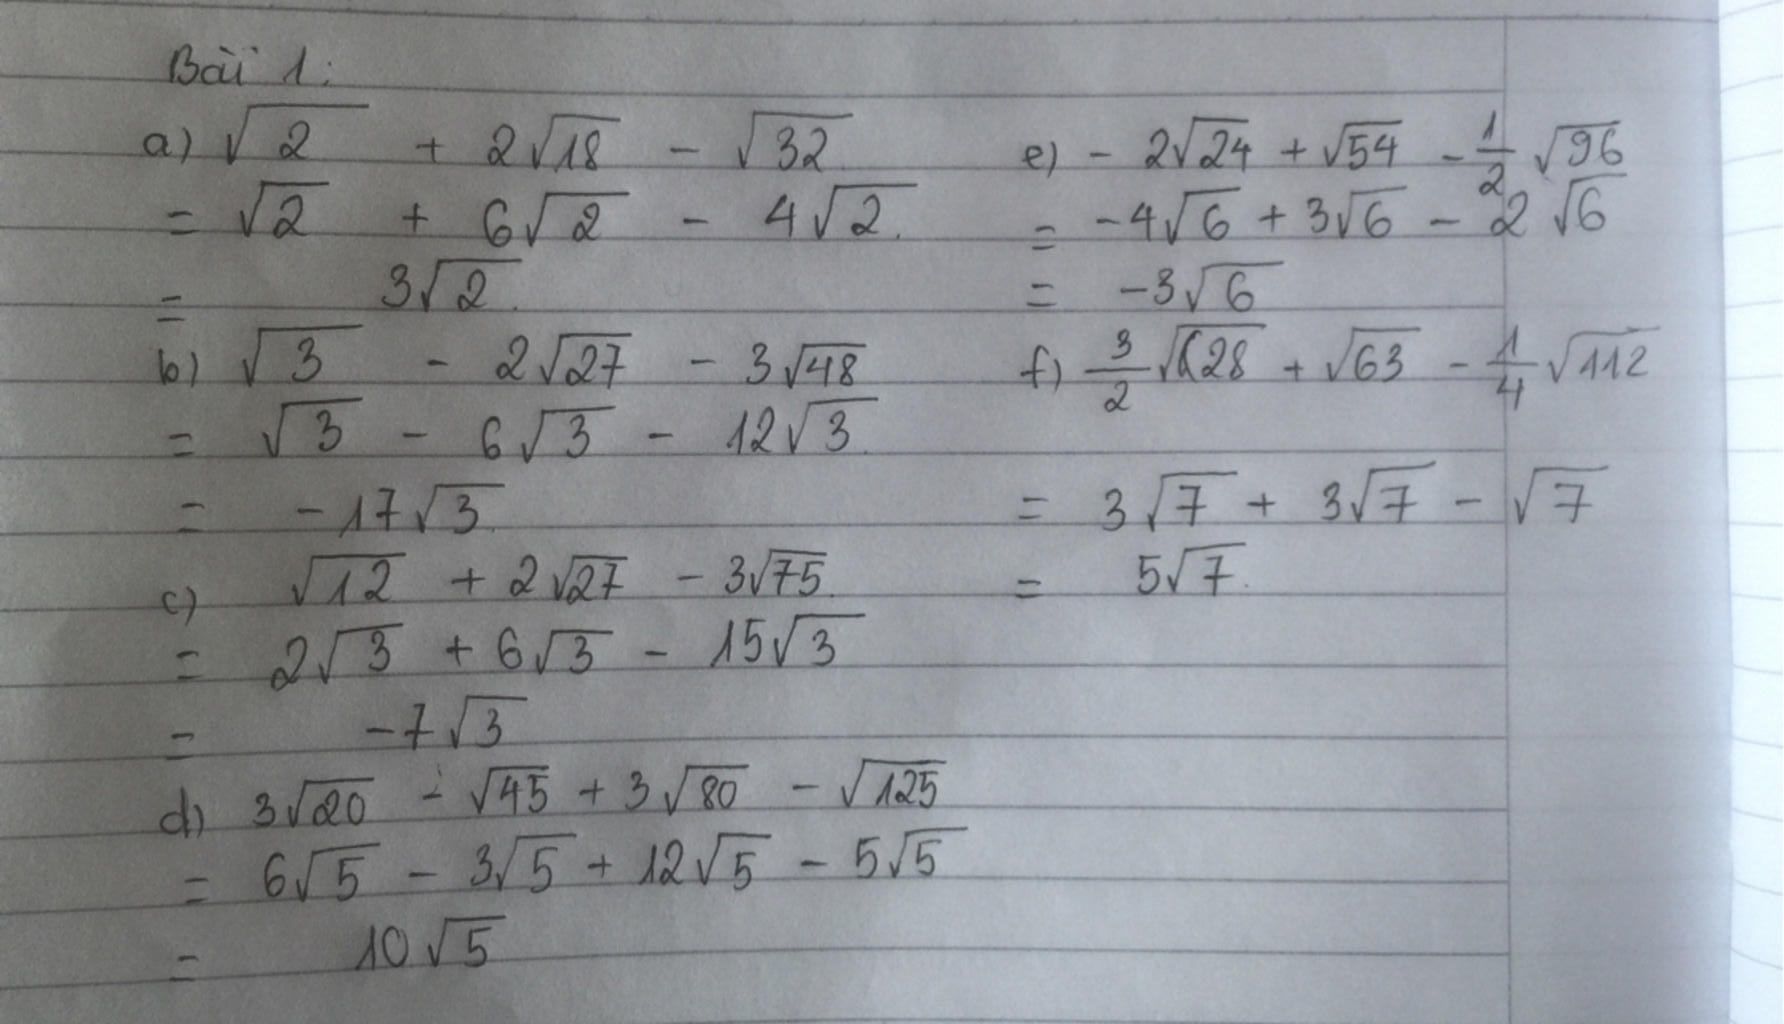 Bài 1:
a) √2 + 2√18 - √32
= √2 + 6√2 - 4√2.
= 3√2.
b) √3 - 2√27 - 3√48
= √3 - 6√3 - 12√3.
= -17√3.
c) √12 + 2√27 - 3√75.
= 2√3 + 6√3 - 15√3
= -7√3
d) 3√20 - √45 + 3√80 - √125
= 6√5 - 3√5 + 12√5 - 5√5
= 10√5
e) - 2√24 + √54 - 1/2 √96
= -4√6 + 3√6 - 2√6
= -3√6
f) 3/2 √28 + √63 - 1/4 √112
= 3√7 + 3√7 - √7
= 5√7.